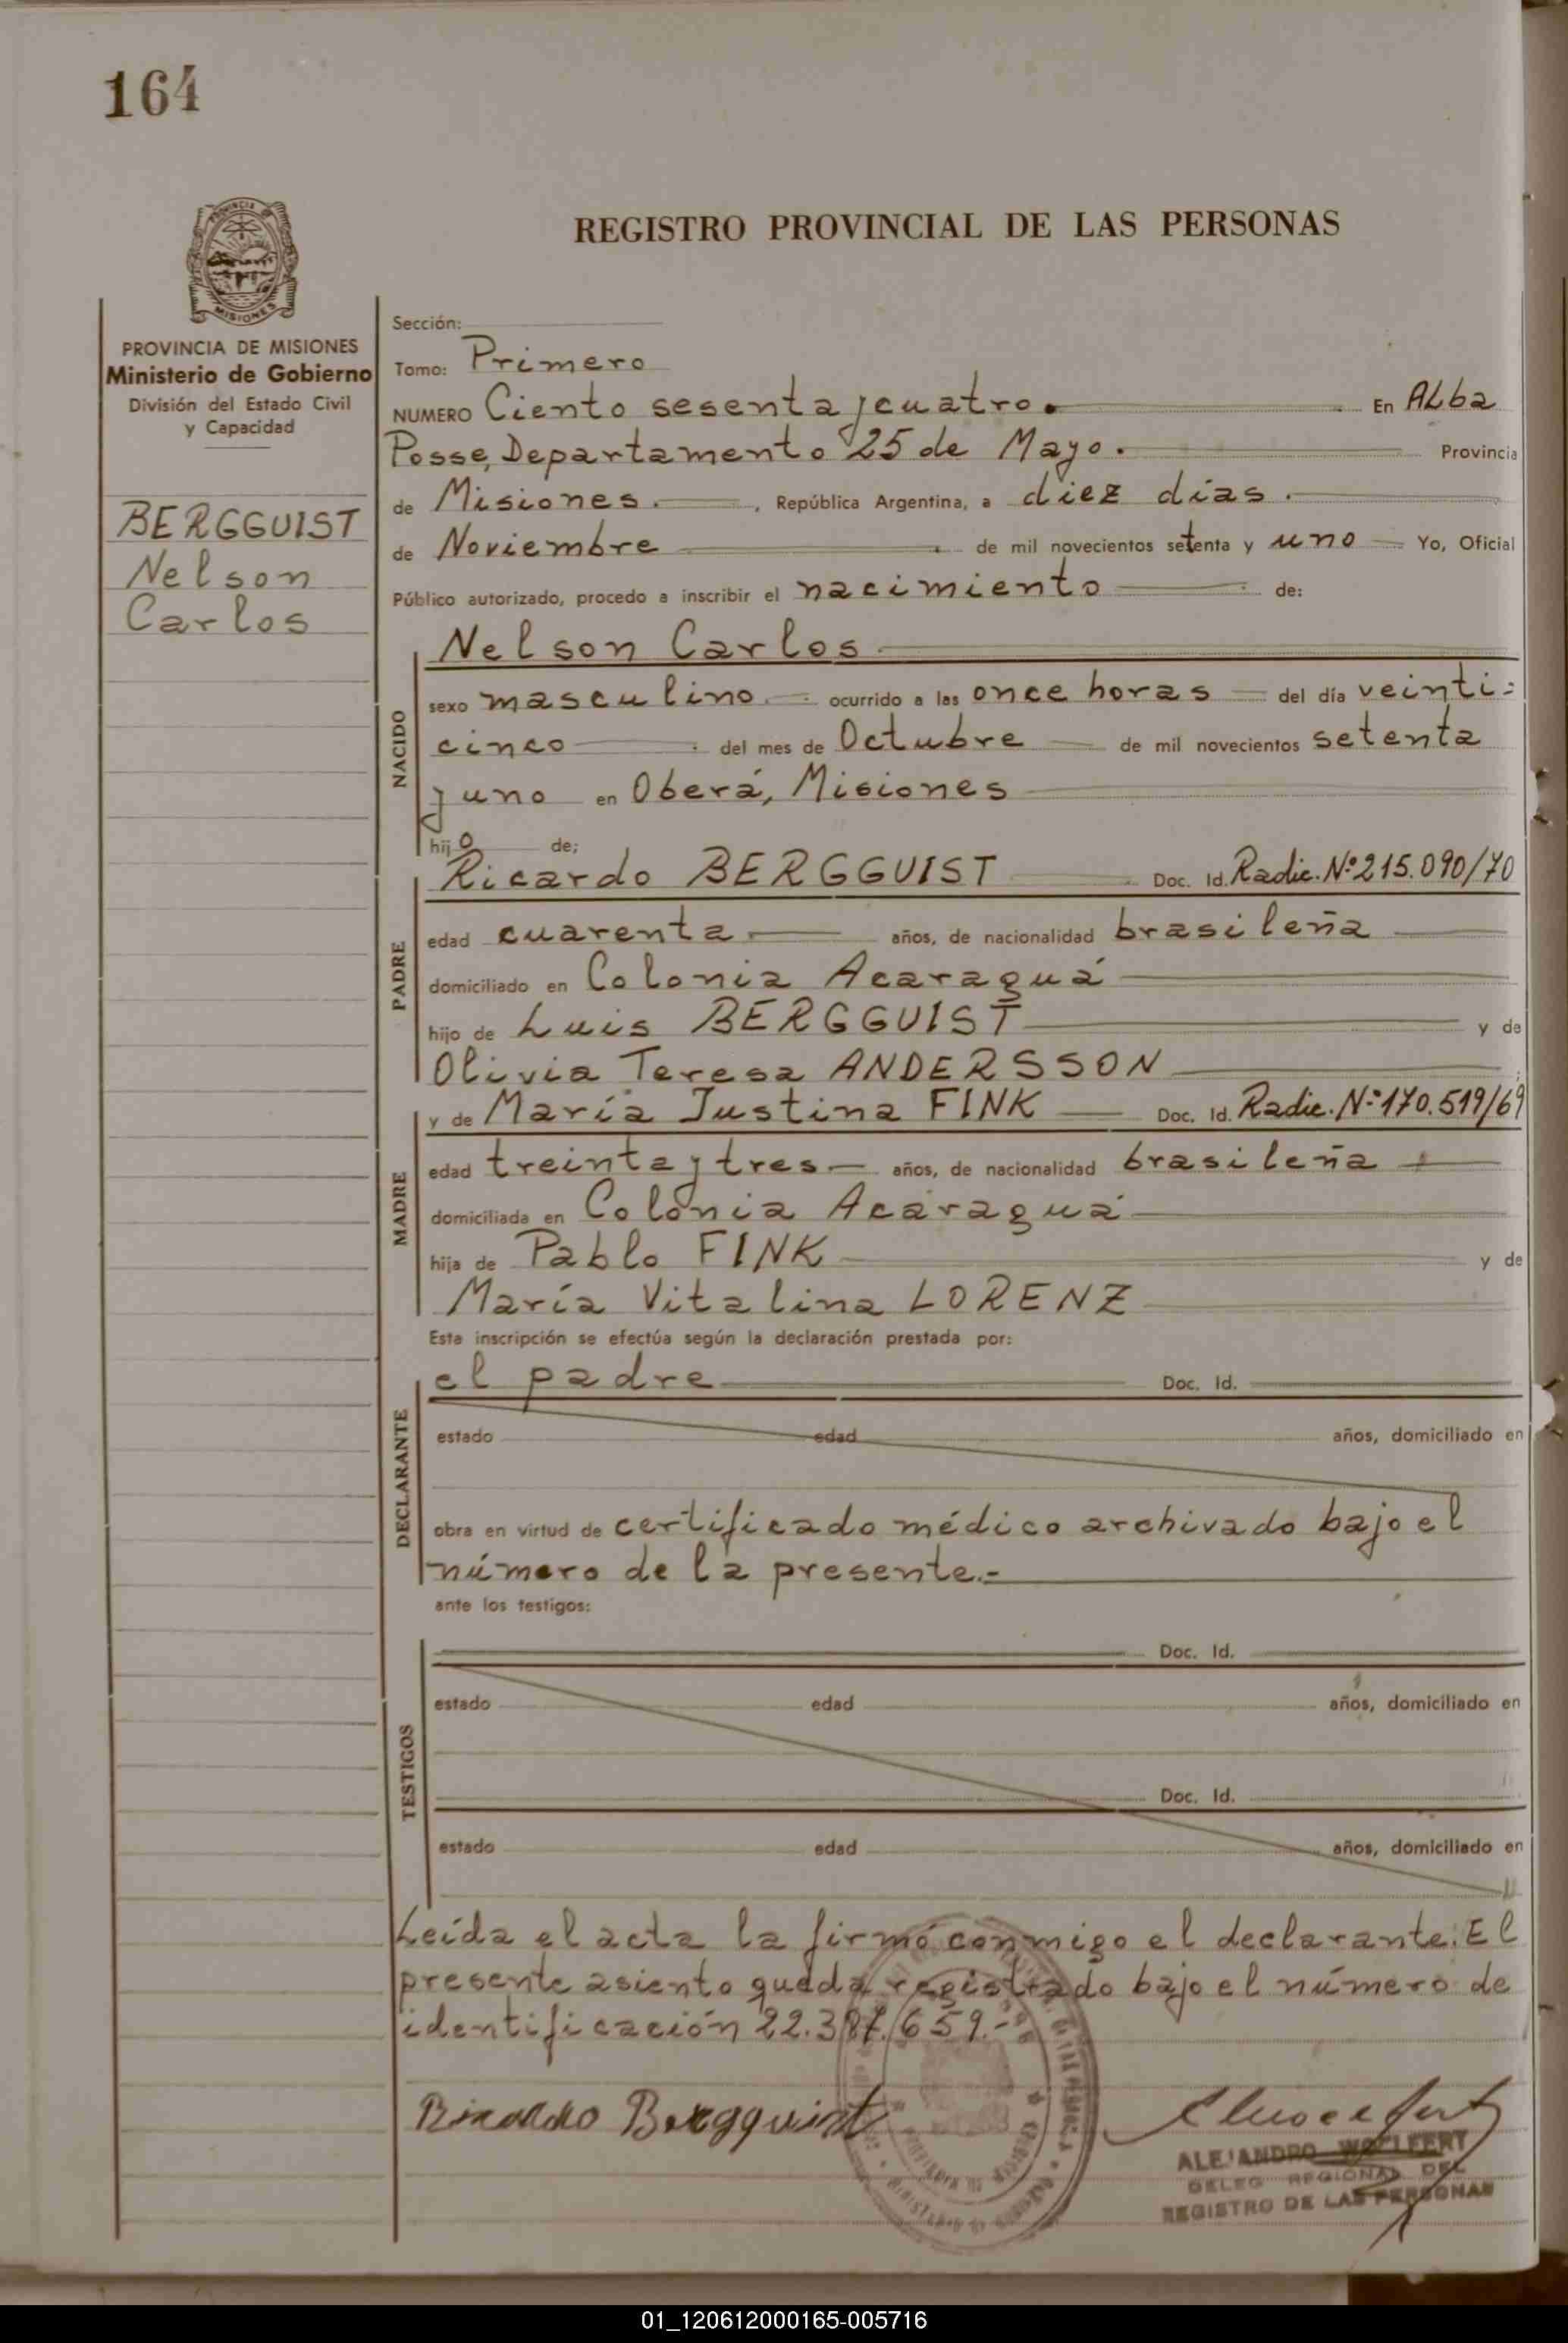 164
REGISTRO PROVINCIAL DE LAS PERSONAS
PROVINCIA
MISIONES
PROVINCIA DE MISIONES
Ministerio de Gobierno
División del Estado Civil
y Capacidad
BERGGUIST
Nelson
Carlos
Sección:
Tomo: Primero
NUMERO Ciento sesenta y cuatro. En ALba
Posse, Departamento 25 de Mayo. Provincia
de Misiones. , República Argentina, a diez días.
de Noviembre de mil novecientos setenta y uno Yo, Oficial
Público autorizado, procedo a inscribir el nacimiento de:
NACIDO
Nelson Carlos
sexo masculino. ocurrido a las once horas del día veinti=
cinco del mes de Octubre de mil novecientos setenta
y uno en Oberá, Misiones
hijo de;
PADRE
Ricardo BERGGUIST Doc. Id. Radic. Nº 215.090/70
edad cuarenta. años, de nacionalidad brasileña
domiciliado en Colonia Acaraguá
hijo de Luis BERGGUIST y de
Olivia Teresa ANDERSSON
MADRE
y de María Justina FINK Doc. Id. Radic. Nº 170.519/69
edad treinta y tres. años, de nacionalidad brasileña
domiciliada en Colonia Acaraguá
hija de Pablo FINK y de
María Vitalina LORENZ
Esta inscripción se efectúa según la declaración prestada por:
DECLARANTE
el padre Doc. Id.
estado edad años, domiciliado en
obra en virtud de certificado médico archivado bajo el
número de la presente.-
ante los testigos:
TESTIGOS
Doc. Id.
estado edad años, domiciliado en
Doc. Id.
estado edad años, domiciliado en
Leída el acta la firmó conmigo el declarante. El
presente asiento queda registrado bajo el número de
identificación 22.387.659.-
Bergquist
ALEJANDRO WOLFERT
DELEG REGIONAL DEL
REGISTRO DE LAS PERSONAS
01_120612000165-005716